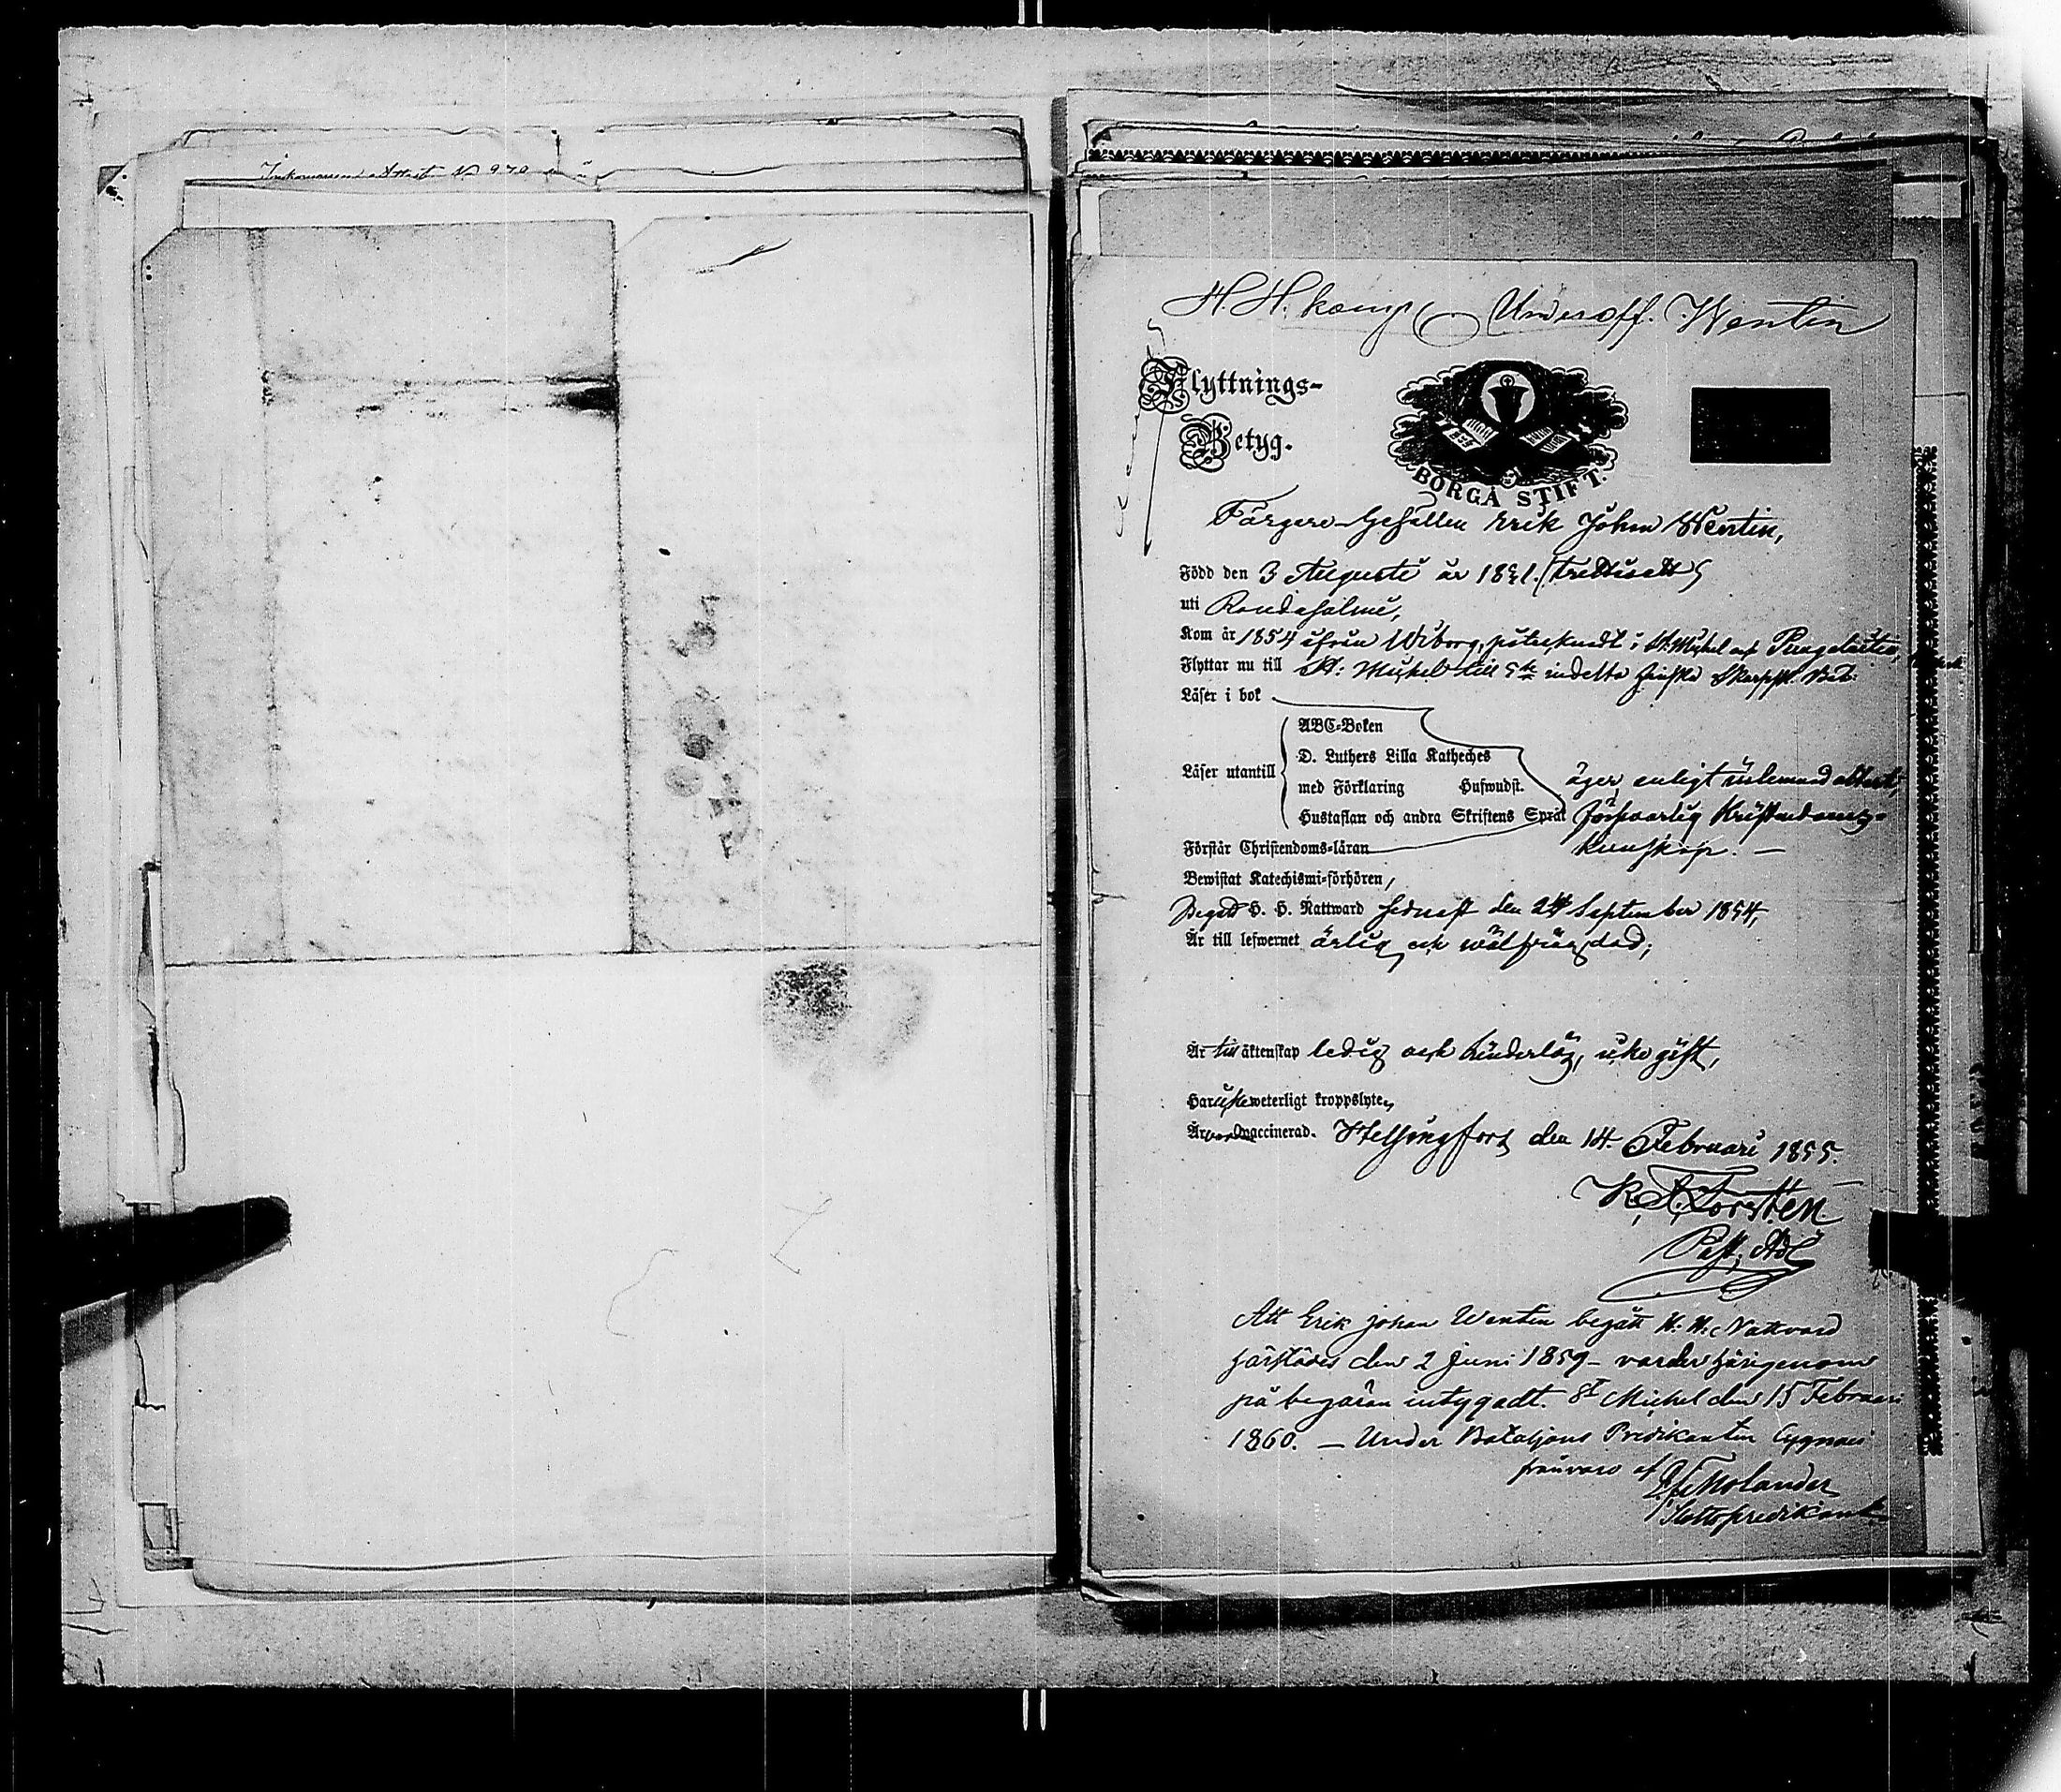 Inkommande Attest No 970
H. H. kamp Underoff. Wentin
Flyttnings-
Betyg.
BORGÅ STIFT.
Färgare-Gesällen Erik Johan Wentin,
Född den 3 Augusti år 1831. (trettioett)
uti Randasalmi,
Kom år 1854 ifrån Wiborg, St. Michel
Flyttar nu till St: Michel till indelta finska Skarpsk. Bat:
Läser i bok
Läser utantill
ABC-Boken
D. Luthers Lilla Katheches
med Förklaring Hufwudst.
Hustaflan och andra Skriftens Språk
äger, enligt attest,
försvarlig Kristendoms-
kunskap. —
Förstår Christendoms-läran
Bewistat Katechismi-förhören,
Begått H. H. Nattward sednast den 24 September 1854,
Är till lefwernet ärlig och wälfrägdad;
Är till äktenskap ledig och hinderlös, icke gift,
Har icke weterligt kroppslyte,
Är waccinerad. Helsingfors den 14. Februari 1855.
K. A. Forstén.
Past. Adj
Att Erik Johan Wentin begått H. H. Nattvard
härstädes den 2 Juni 1859 – varder härigenom
på begäran intygadt. St Michel den 15 Februari
1860. — Under Bataljons Predikanten Cygnæi
frånvaro af
Molander
Slottspredikant